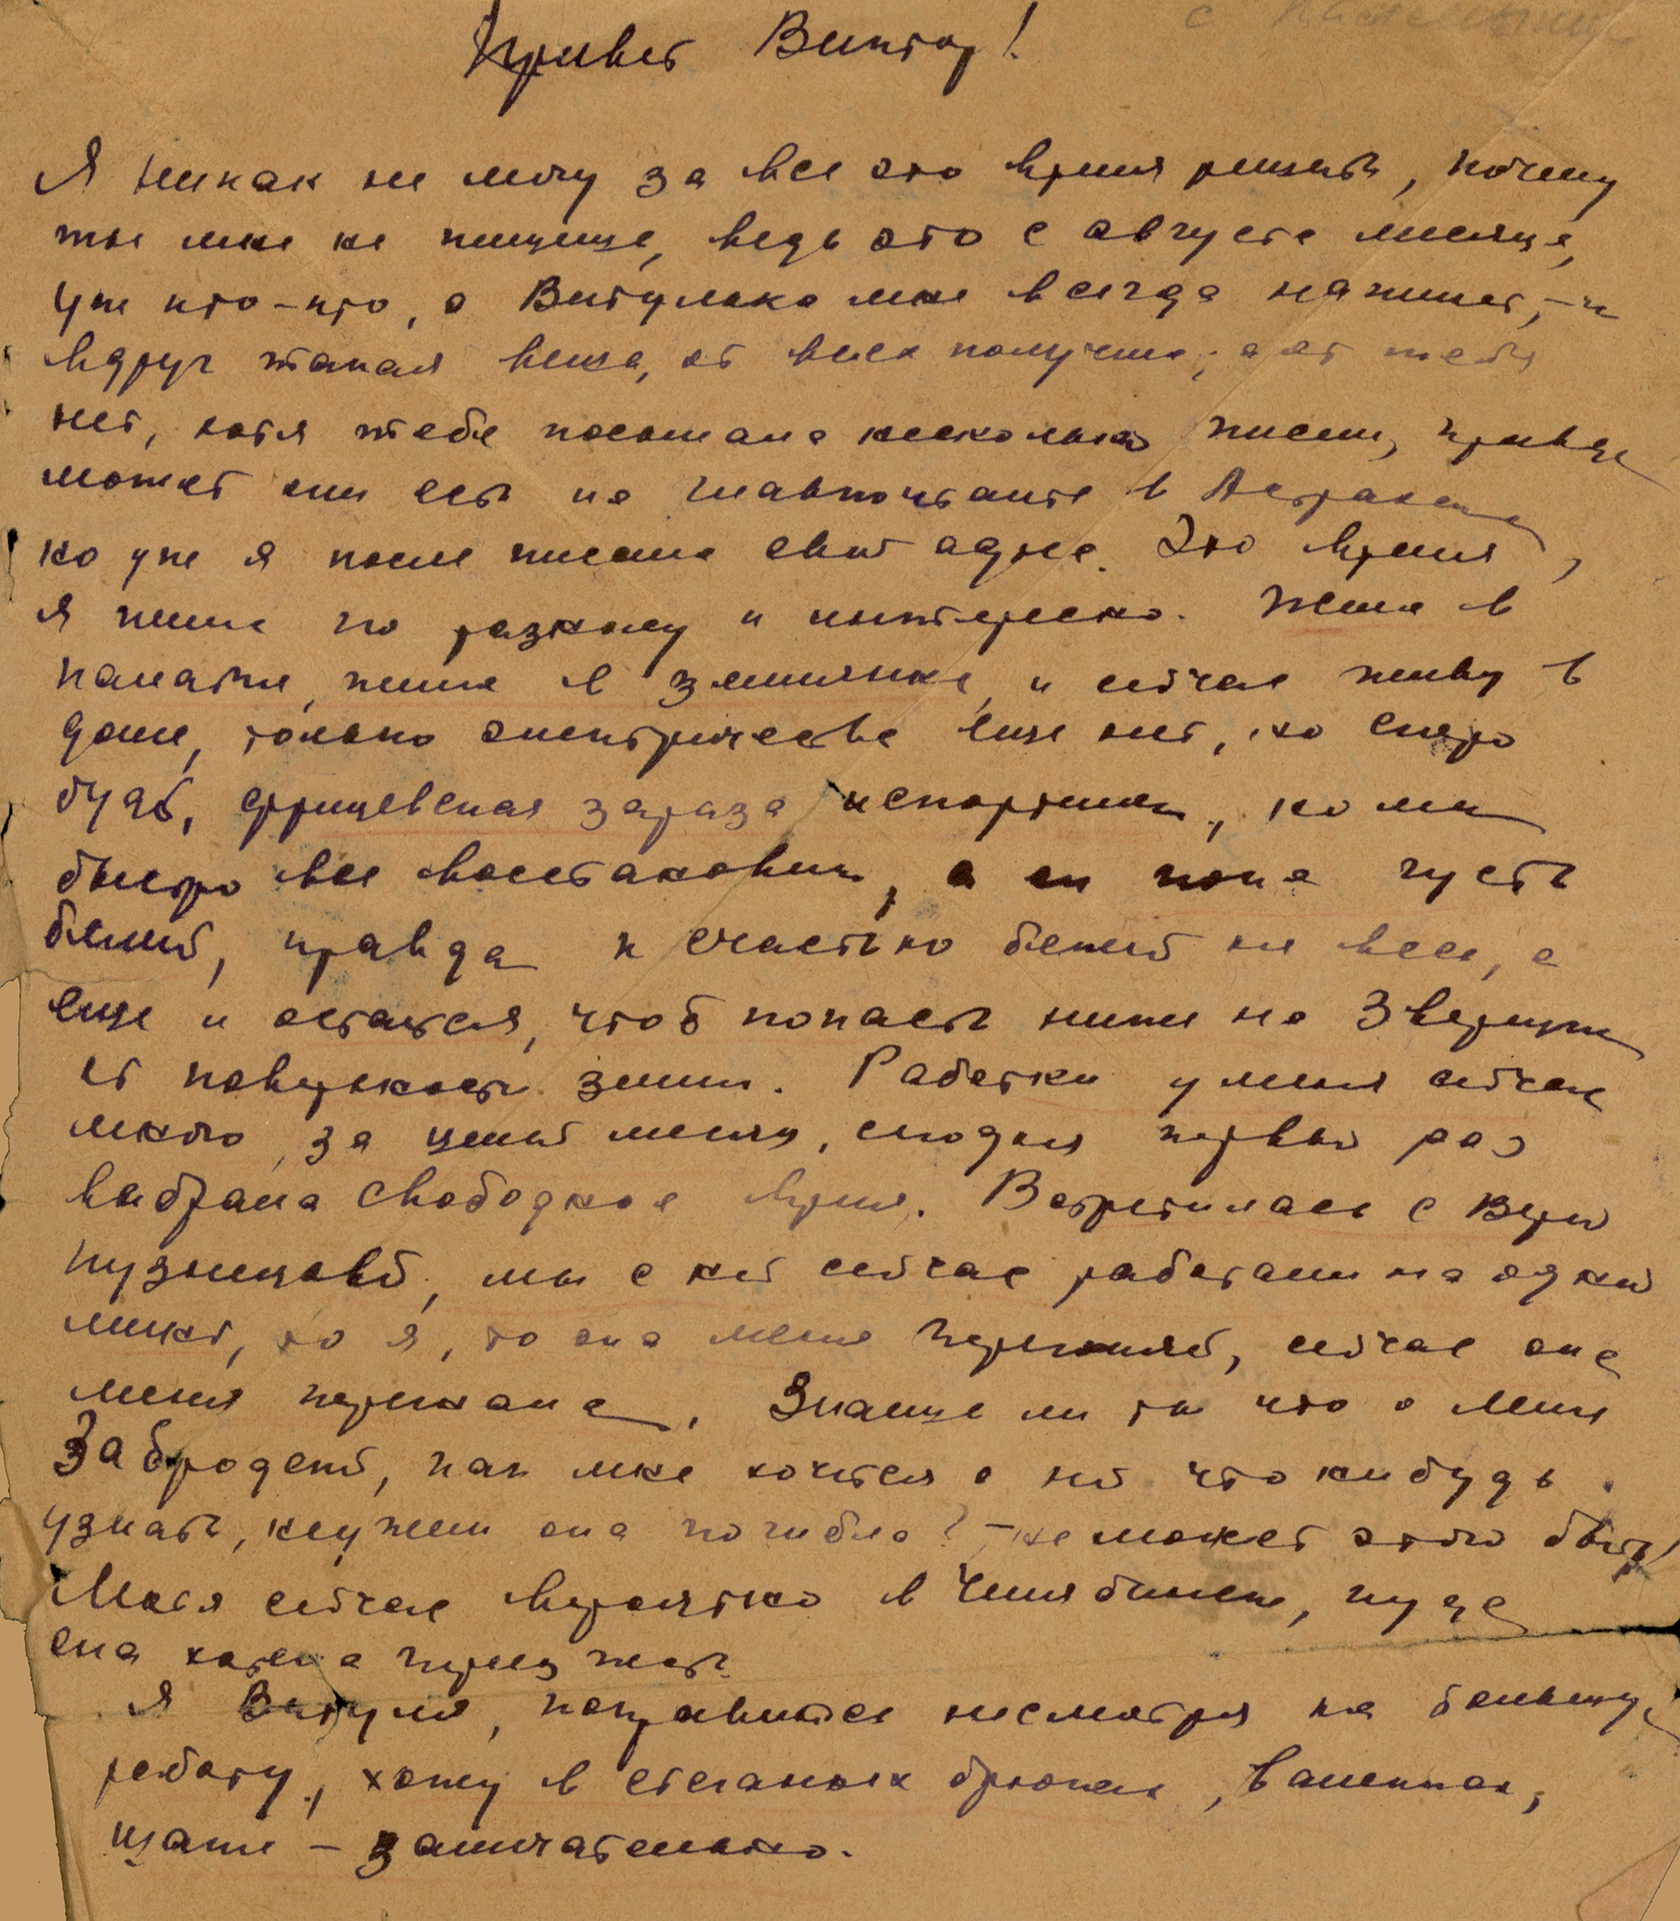 Привет Виктор!
Я никак не могу за все это время решить, почему
ты мне не пишешь, ведь это с августа месяца,
уж кто-кто, а Витулька мне всегда напишет, – и
вдруг такая вещь, от всех получила, а от тебя
нет, хотя тебе посылала несколько писем, правда
может они есть на главпочтамте в Астрахани,
но уже я после писала свой адрес. Это время,
я жила по разному и интересно. Жила в
палатке, жила в землянке, и сейчас живу в
доме, только электричества еще нет, но скоро
будет, фрицевская зараза испортили, но мы
быстро все восстановим, а он пока пусть
бежит, правда к счастью бежит не весь, а
еще и остается, чтоб попасть ниже на 3 вершка
от поверхности земли. Работки у меня сейчас
много, за целый месяц, сегодня первый раз
выбрала свободное время. Встретилась с Верой
Кузнецовой, мы с ней сейчас работаем на одной
линии, то я, то она меня перегоняет, сейчас она
меня перегнала. Знаешь ли ты что о Лени
Забродской, как мне хочется о ней что нибудь
узнать, неужели она погибла? – не может этого быть!
Мася сейчас вероятно в Челябинске, куда
она хотела переезжать.
Я Витуля, поправилась несмотря на большую
работу, хожу в стеганных брюках, валенках,
шапке – замечательно.